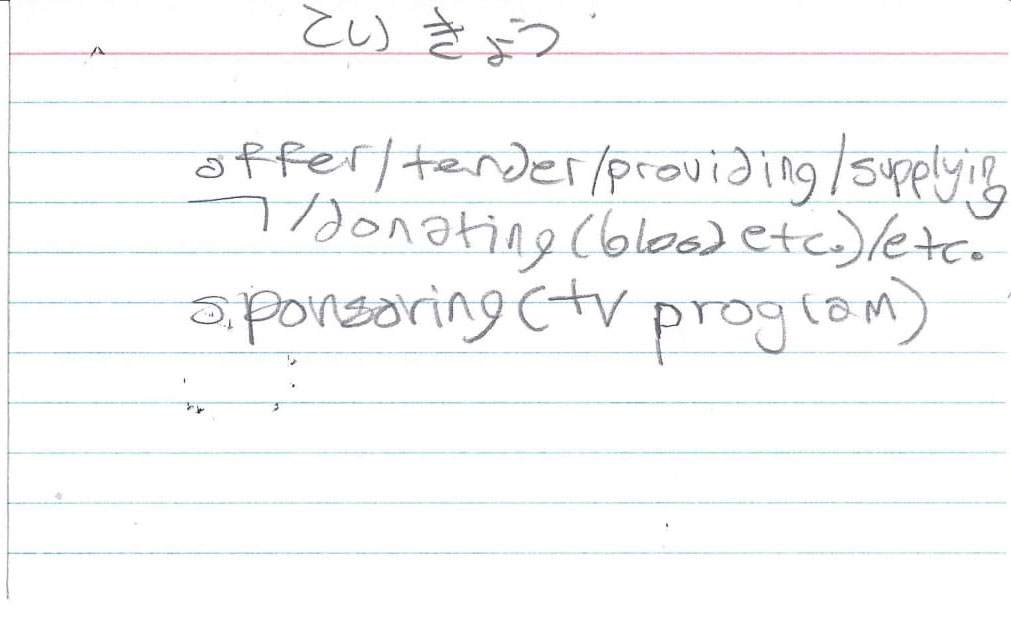 ていきょう
offer/tender/providing/supplying
/donating(blood etc.)/etc.
sponsoring(tv program)